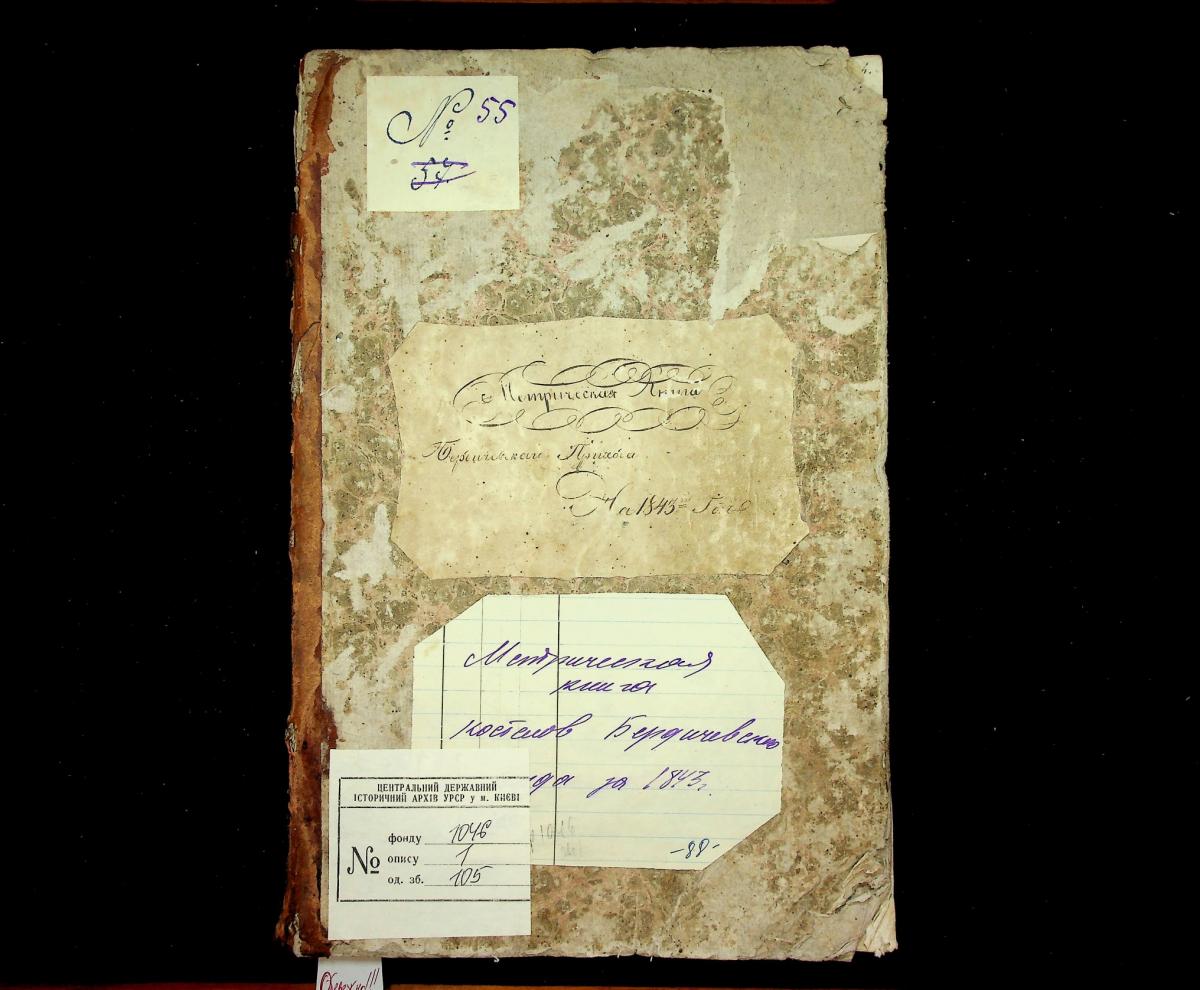 № 55
57
Метрическая Книга
Прихода
На 1843 Годъ
Метрическая
книга
костелов Бердичевского
да за 1843 г.
-88-
ЦЕНТРАЛЬНИЙ ДЕРЖАВНИЙ
ІСТОРИЧНИЙ АРХІВ УРСР у м. КИЄВІ
№
фонду 1046
опису 1
од. зб. 105